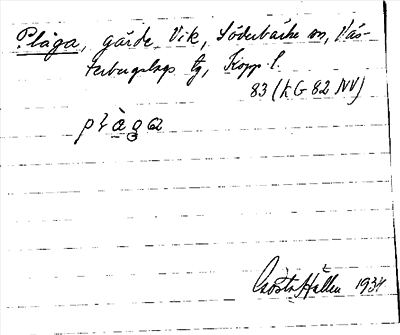 Plåga, gärde Vik, Söderbärke sn, Väs-
terbergslags tg, Kopp. l.
83 (KG 82 NV)
Gösta Hallén 1934